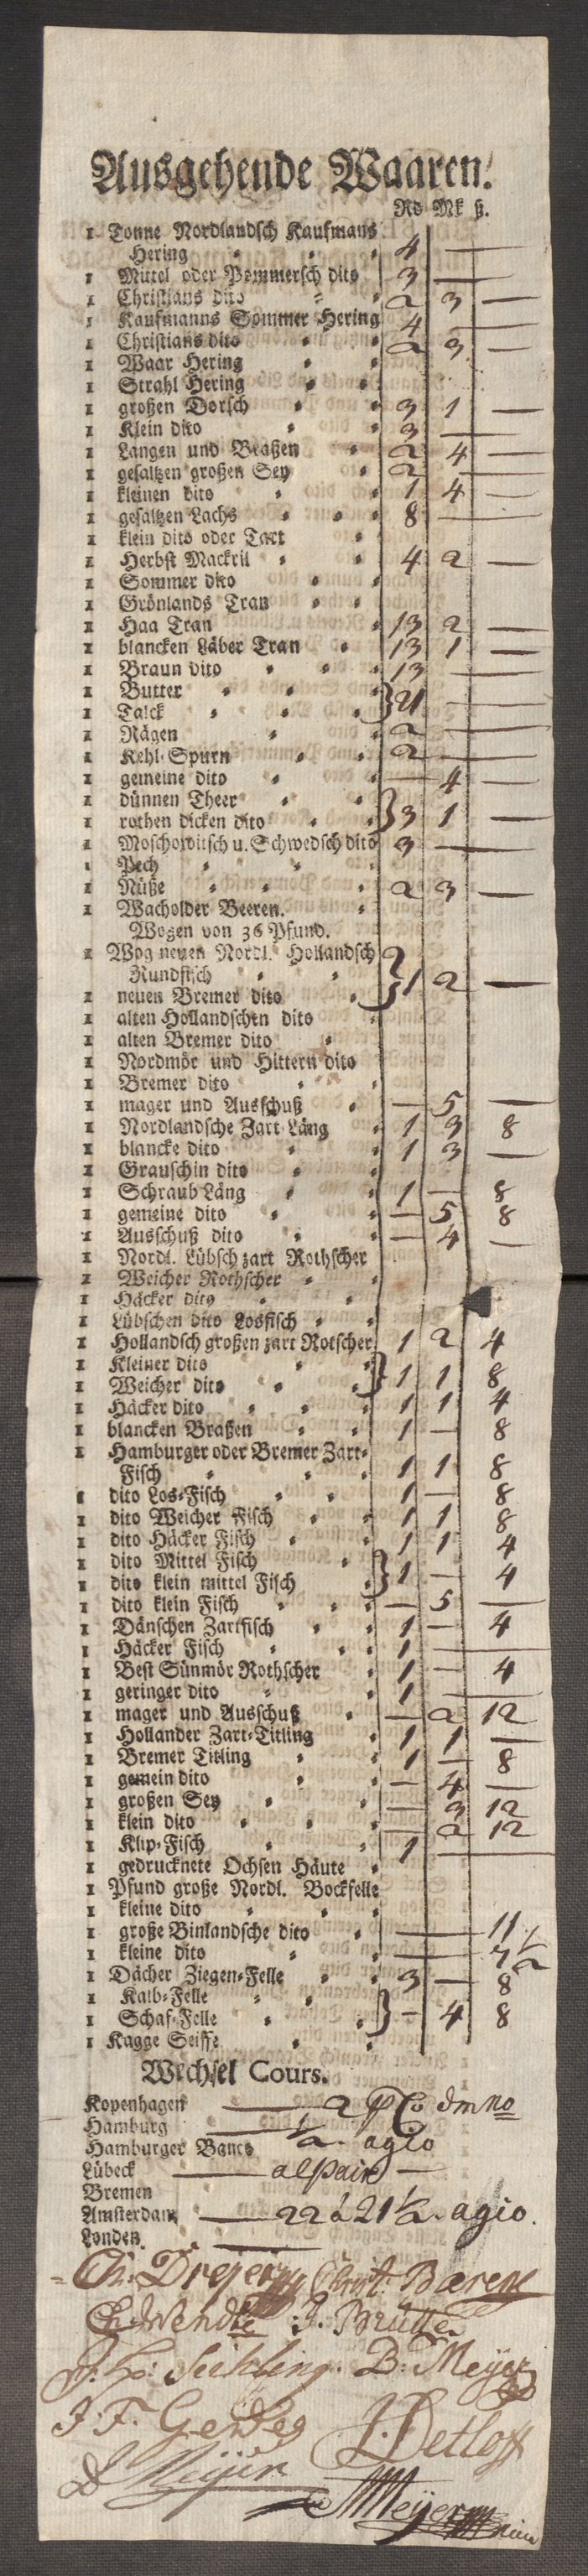 Ausgehende Waaren.
Rd Mk ß.
1 Tonne Nordlandsch Kaufmans
Hering 4 —
1 Mittel oder Pommersch dito 3 —
1 Christians dito 2 3 —
1 Kaufmanns Sommer Hering 4 —
1 Christians dito 2 3 —
1 Waar Hering
1 Strahl Hering
1 großen Dorsch 3 1 —
1 Klein dito 3 —
1 Langen und Braßen 2 4 —
1 gesaltzen großen Sey 2 —
1 kleinen dito 1 4 —
1 gesaltzen Lachs 8 —
1 klein dito oder Tart
1 Herbst Mackril 4 2 —
1 Sommer dito
1 Grönlands Tran
1 Haa Tran 13 2 —
1 blancken Läber Tran 13 1 —
1 Braun dito 13 —
1 Butter
1 Talck } 21 —
1 Rägen 2 —
1 Kehl-Spurn 2 —
1 gemeine dito — 4 —
1 dünnen Theer
1 rothen dicken dito } 3 1 —
1 Moschowitsch u. Schwedsch dito 3 —
1 Pech
1 Nüße 2 3 —
1 Wacholder Beeren.
Wogen von 36 Pfund.
1 Wog neuen Nordl. Hollandsch
Rundfisch
1 neuen Bremer dito } 1 2 —
1 alten Hollandschen dito
1 alten Bremer dito
1 Nordmör und Hittern dito
1 Bremer dito
1 mager und Ausschuß — 5 —
1 Nordlandsche Zart Läng 1 3 8
1 blancke dito 1 3 —
1 Grauschin dito
1 Schraub Läng 1 — 8
1 gemeine dito — 5 8
1 Ausschuß dito — 4 —
1 Nordl. Lübsch zart Rothscher
1 Weicher Rothscher
1 Häcker dito
1 Lübschen dito Losfisch
1 Hollandsch großen zart Rotscher 1 2 4
1 Kleiner dito
1 Weicher dito } 1 1 8
1 Häcker dito 1 1 4
1 blancken Braßen 1 — 8
1 Hamburger oder Bremer Zart-
Fisch 1 1 8
1 dito Los-Fisch 1 — 8
1 dito Weicher Fisch 1 1 8
1 dito Häcker Fisch 1 1 4
1 dito Mittel Fisch
1 dito klein mittel Fisch } 1 — 4
1 dito klein Fisch — 5 —
1 Dänschen Zartfisch 1 — 4
1 Häcker Fisch 1 —
1 Best Sünmör Rothscher 1 — 4
1 geringer dito 1 —
1 mager und Ausschuß — 2 12
1 Hollander Zart-Titling 1 1 —
1 Bremer Titling 1 — 8
1 gemein dito — 4 —
1 großen Sey — 3 12
1 klein dito — 2 12
1 Klip-Fisch 1 —
1 gedrucknete Ochsen Häute
1 Pfund große Nordl. Bockfelle
1 kleine dito
1 große Binlandsche dito — 11
1 kleine dito — 7 1/2
1 Dächer Ziegen-Felle 3 — 8
1 Kalb-Felle
1 Schaf-Felle } — 4 8
1 Kagge Seiffe
Wechsel Cours.
Kopenhagen — 2 p Co
Hamburg —
Hamburger Banco 1/2. agio
Lübeck — alpari —
Bremen
Amsterdam — 22 à 21 1/2. agio.
Londen. —
Ch: Dreyer Christ. Barens
Ch Wendte J. Brütte
B: Meÿer
J. F. Gerdes J. Detloff
D Meijer
Meÿer